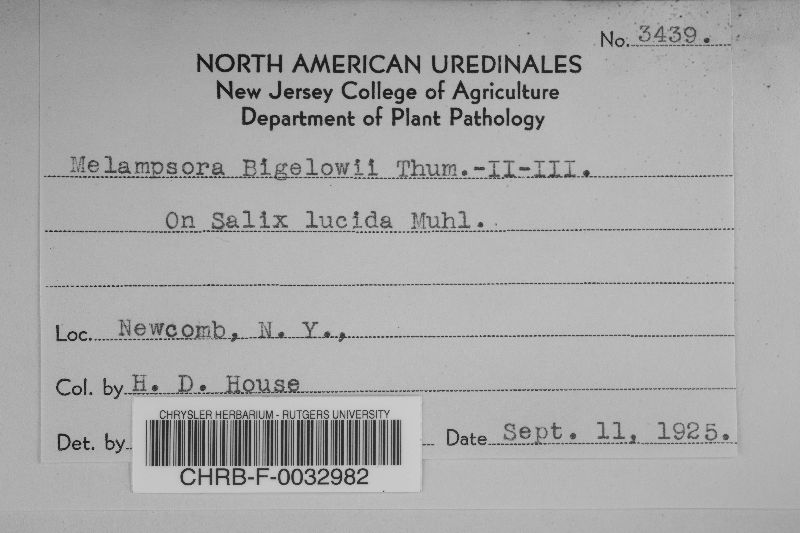 No. 3439.
NORTH AMERICAN UREDINALES
New Jersey College of Agriculture
Department of Plant Pathology
Melampsora Bigelowii Thum.-II-III.
On Salix lucida Muhl.
Loc. Newcomb, N. Y.,
Col. by H. D. House
Det. by
Date Sept. 11, 1925.
CHRYSLER HERBARIUM - RUTGERS UNIVERSITY
CHRB-F-0032982